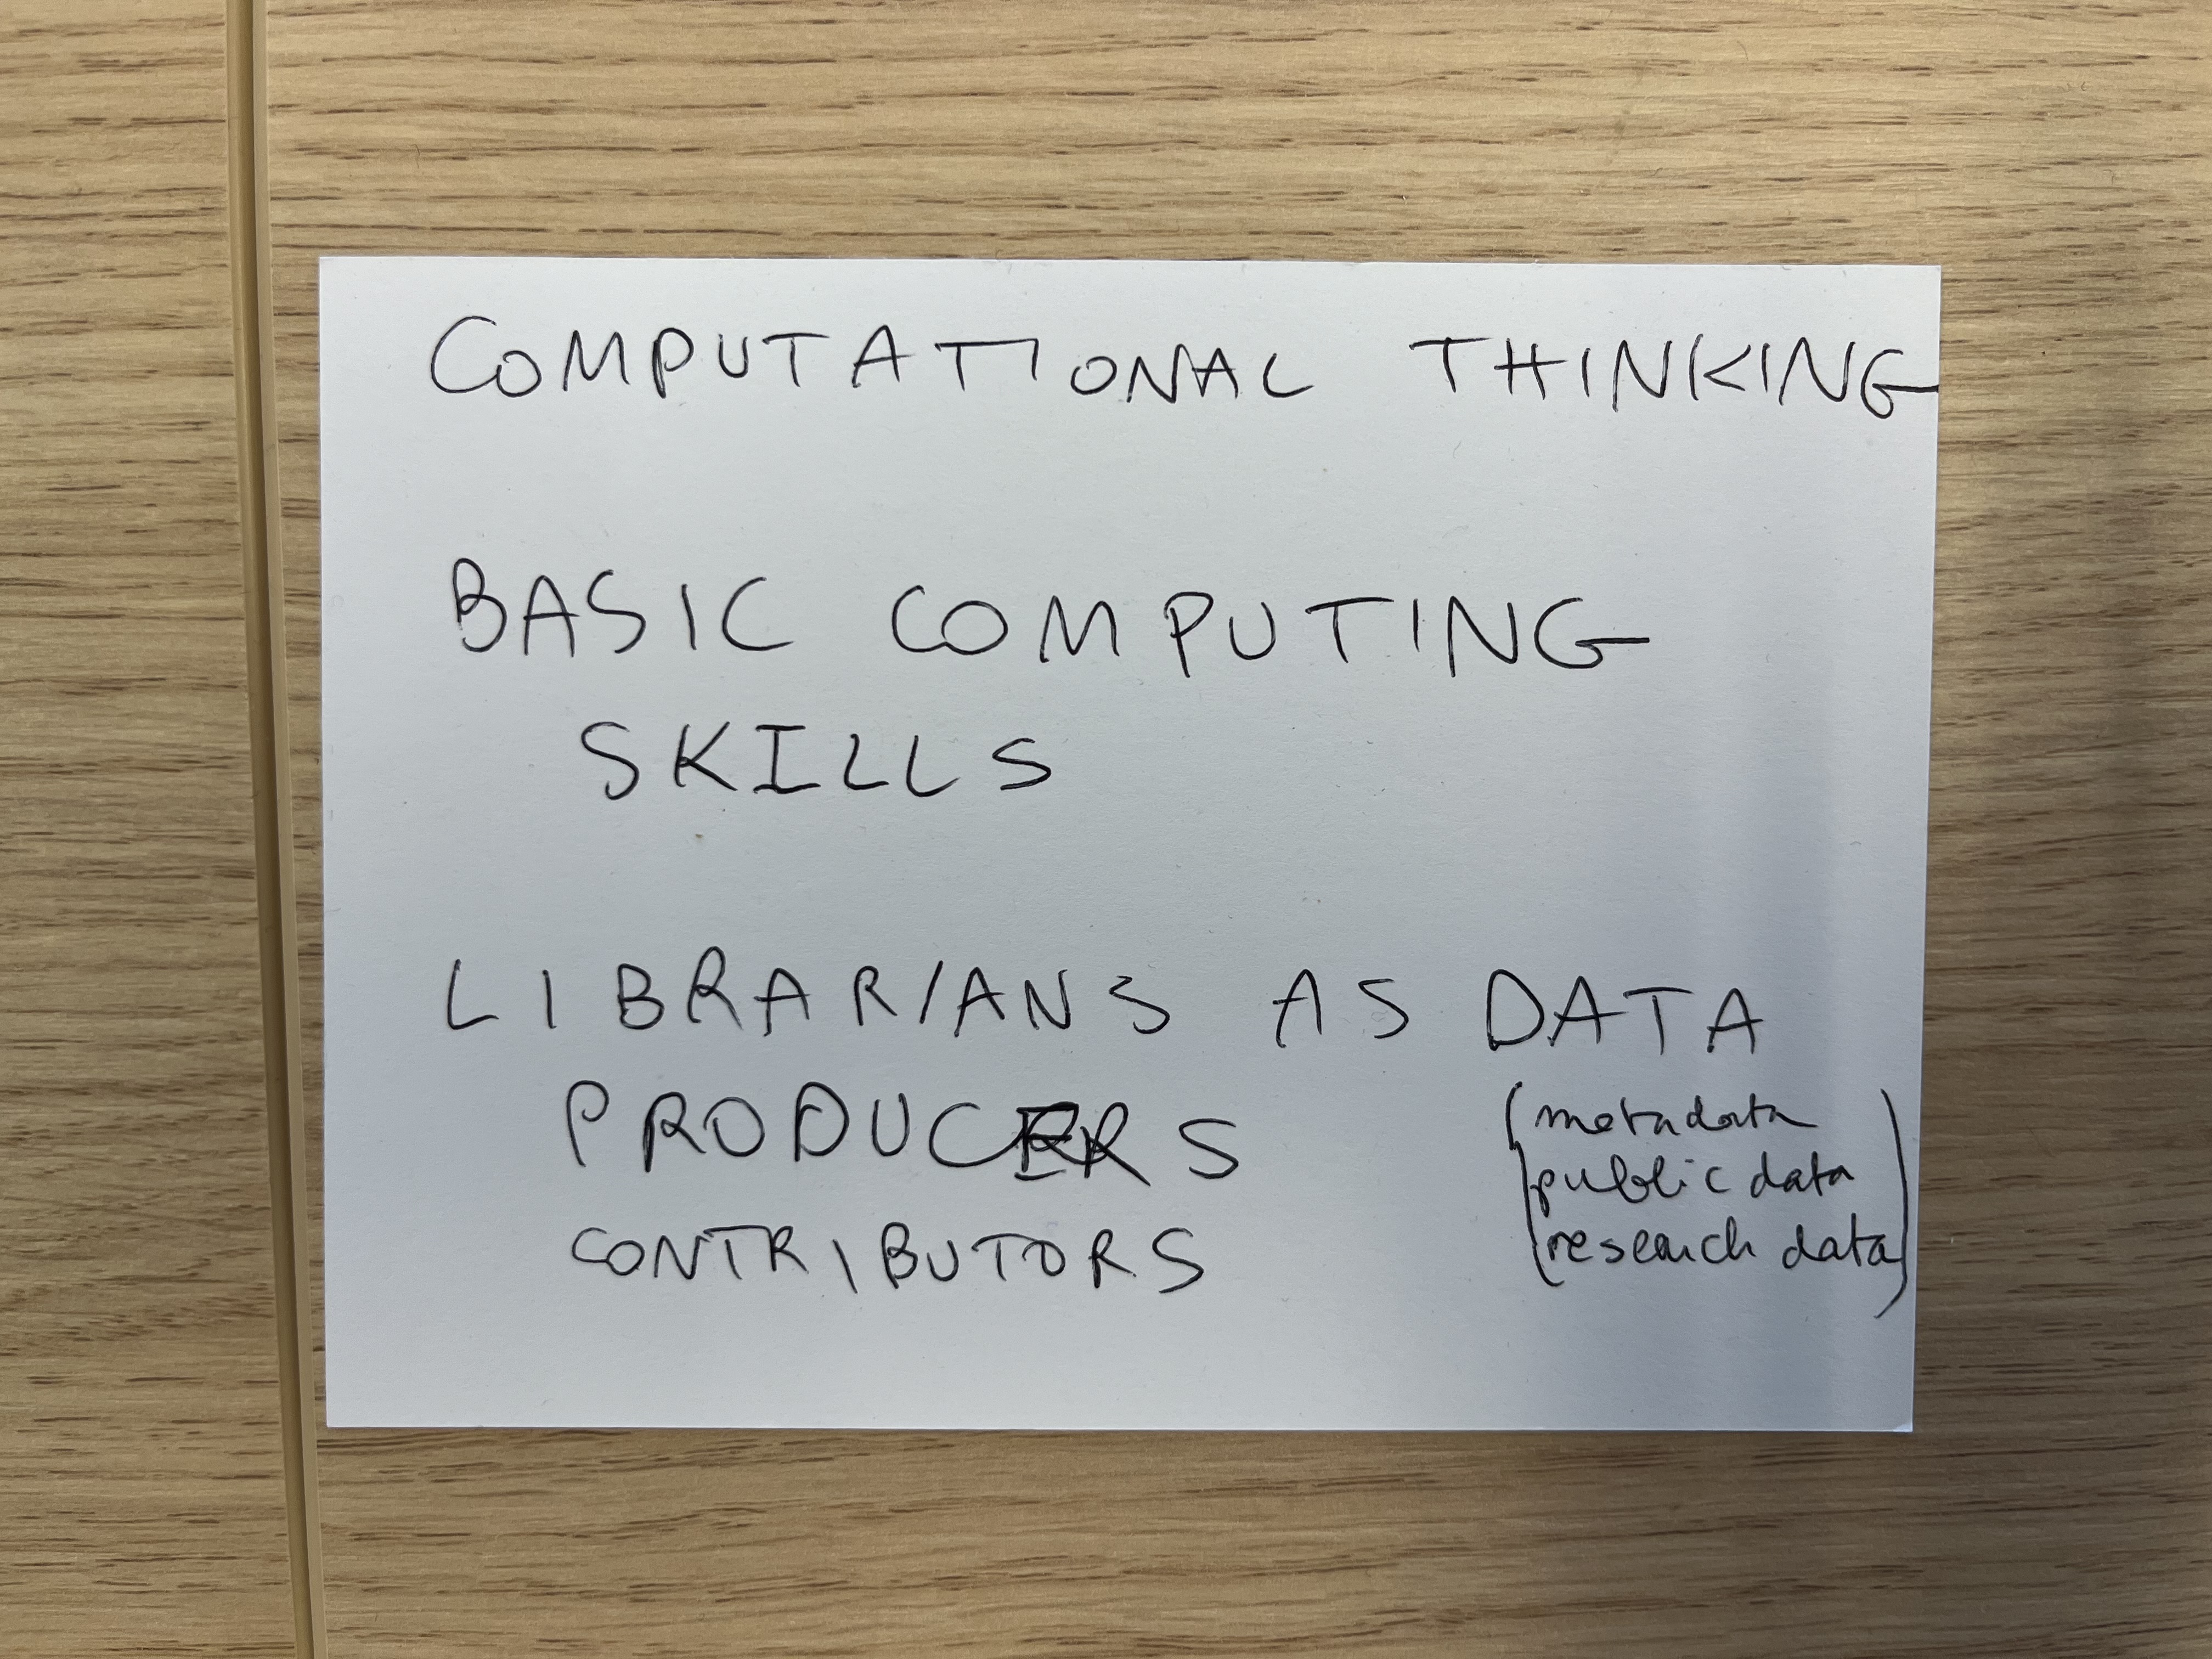 COMPUTATIONAL THINKING
BASIC COMPUTING
SKILLS
LIBRARIANS AS DATA
PRODUCERS
CONTRIBUTORS
(metadata
public data
research data)